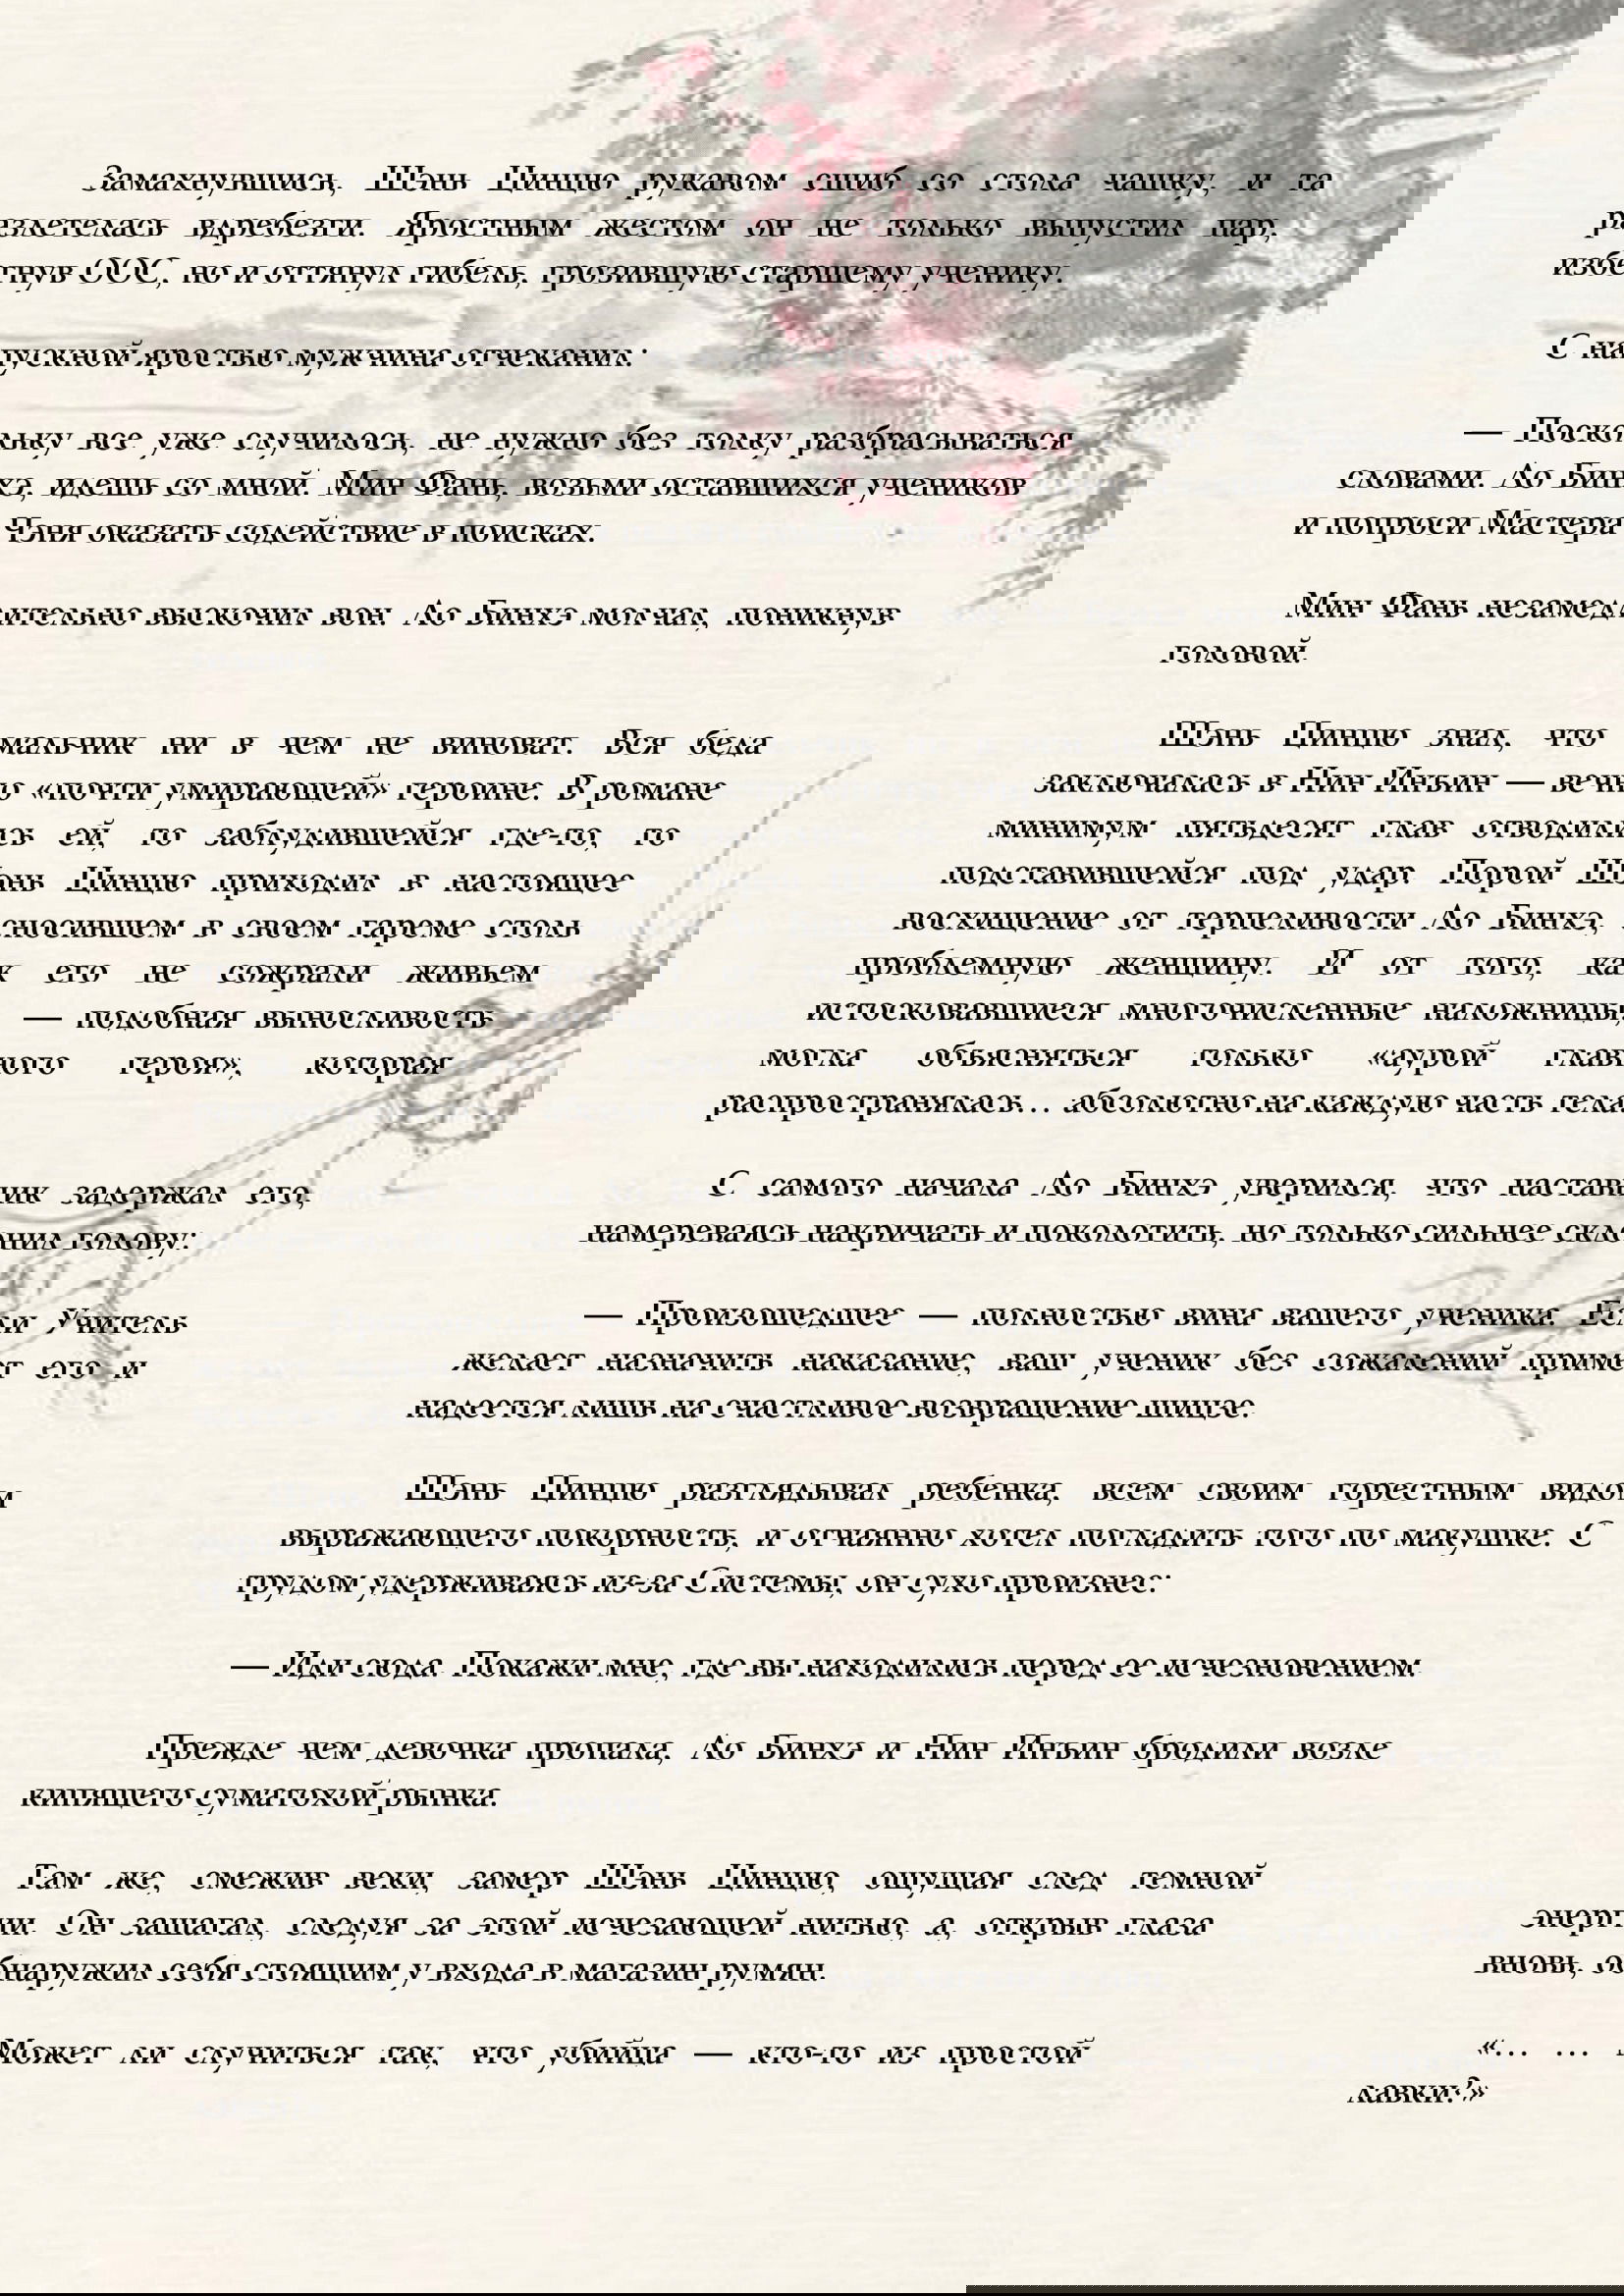 Замахнувшись, Шэнь Цинцю рукавом сшиб со стола чашку, и та
разлетелась вдребезги. Яростным жестом он не только выпустил пар,
избегнув ООС, но и оттянул гибель, грозившую старшему ученику.
С напускной яростью мужчина отчеканил:
— Поскольку все уже случилось, не нужно без толку разбрасываться
словами. Ло Бинхэ, идешь со мной. Мин Фань, возьми оставшихся учеников
и попроси Мастера Чэня оказать содействие в поисках.
Мин Фань незамедлительно выскочил вон. Ло Бинхэ молчал, поникнув
головой.
Шэнь Цинцю знал, что мальчик ни в чем не виноват. Вся беда
заключалась в Нин Инъин — вечно «почти умирающей» героине. В романе
минимум пятьдесят глав отводились ей, то заблудившейся где-то, то
подставившейся под удар. Порой Шэнь Цинцю приходил в настоящее
восхищение от терпеливости Ло Бинхэ, сносившем в своем гареме столь
проблемную женщину. И от того, как его не сожрали живьем
истосковавшиеся многочисленные наложницы, — подобная выносливость
могла объясняться только «аурой главного героя», которая
распространялась… абсолютно на каждую часть тела.
С самого начала Ло Бинхэ уверился, что наставник задержал его,
намереваясь накричать и поколотить, но только сильнее склонил голову:
— Произошедшее — полностью вина вашего ученика. Если Учитель
желает назначить наказание, ваш ученик без сожалений примет его и
надеется лишь на счастливое возвращение шицзе.
Шэнь Цинцю разглядывал ребенка, всем своим горестным видом
выражающего покорность, и отчаянно хотел погладить того по макушке. С
трудом удерживаясь из-за Системы, он сухо произнес:
— Иди сюда. Покажи мне, где вы находились перед ее исчезновением.
Прежде чем девочка пропала, Ло Бинхэ и Нин Инъин бродили возле
кипящего суматохой рынка.
Там же, смежив веки, замер Шэнь Цинцю, ощущая след темной
энергии. Он зашагал, следуя за этой исчезающей нитью, а, открыв глаза
вновь, обнаружил себя стоящим у входа в магазин румян.
«… … Может ли случиться так, что убийца — кто-то из простой
лавки?»